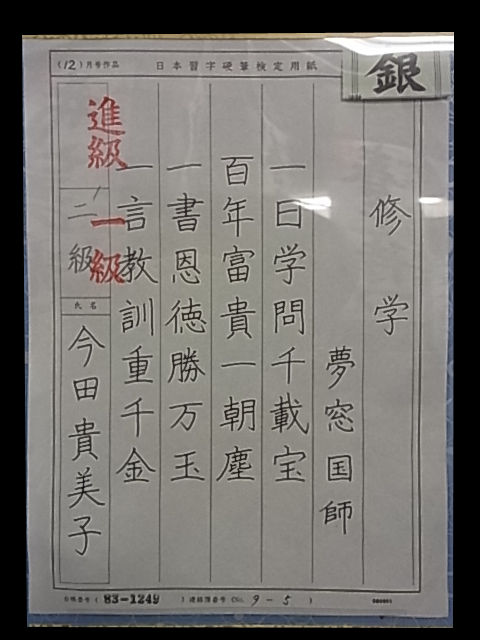 (12)月号作品
日本習字硬筆検定用紙
銀
修学
夢窓国師
一日学問千載宝
百年富貴一朝塵
一書恩徳勝万玉
一言教訓重千金
進級
一級
二級
氏名
今田貴美子
83-1249
9-5